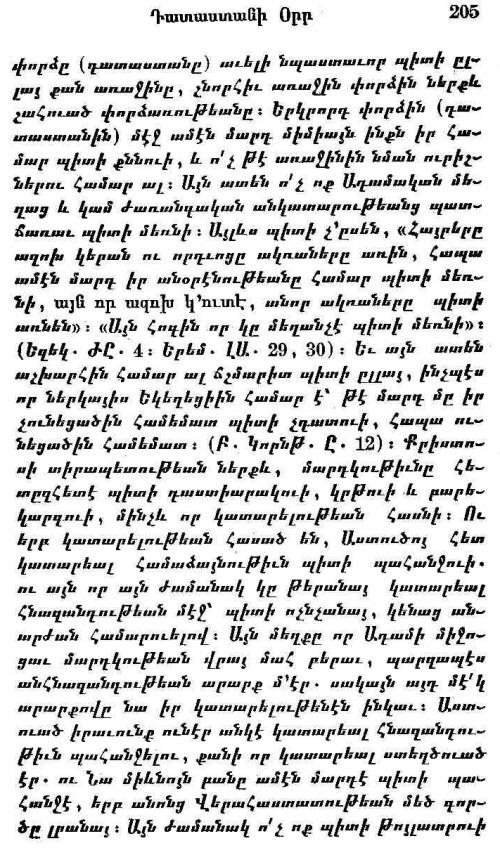 Դատաստանի Օրր 205
փորձը (դատաստանը) աւելի նպաստաւոր պիտի ըլ-
լայ քան առաջինը, շնորհիւ առաջին փորձին ներքև
շահուած փորձառութեանը։ Երկրորդ փորձին (դա-
տաստանին) մէջ ամէն մարդ միմիայն ինքն իր Հա-
մար պիտի քննուի, և ո՛չ թէ առաջինին նման ուրիշ-
ներու Համար ալ։ Այն ատեն ո՛չ ոք Ադամական մե-
ղաց և կամ ժառանգական անկատարութեանց պատ-
ճառաւ պիտի մեռնի։ Այլևս պիտի չ’ըսեն, «Հայրերը
ազոխ կերան ու որդւոցը ակռաները առին, Հապա
ամէն մարդ իր անօրէնութեանը Համար պիտի մեռ-
նի, այն որ ազոխ կ’ուտէ, անոր ակռաները պիտի
առնեն»։ «Այն Հոգին որ կը մեղանչէ պիտի մեռնի»։
(Եզեկ. ԺԸ. 4։ Երեմ. ԼԱ. 29, 30)։ Եւ այն ատեն
աշխարհին Համար ալ ճշմարիտ պիտի ըլլայ, ինչպէս
որ ներկայիս Եկեղեցիին Համար է՝ թէ մարդ մը իր
չունեցածին Համեմատ պիտի չդատուի, Հապա ու-
նեցածին Համեմատ։ (Բ. Կորնթ. Ը. 12)։ Քրիստո-
սի տիրապետութեան ներքև, մարդկութիւնը Հե-
տըզհետէ պիտի դաստիարակուի, կրթուի և բարե-
կարգուի, մինչև որ կատարելութեան Հասնի։ Ու
երբ կատարելութեան Հասած են, Աստուծոյ Հետ
կատարեալ Համաձայնութիւն պիտի պահանջուի.
ու այն որ այն ժամանակ կը թերանայ կատարեալ
Հնազանդութեան մէջ՝ պիտի ոչնչանայ, կենաց ան-
արժան Համարուելով։ Այն մեղքը որ Ադամի միջո-
ցաւ մարդկութեան վրայ մահ բերաւ, պարզապէս
անհնազանդութեան արարք մ’էր. սակայն այդ մէ՛կ
արարքովը նա իր կատարելութենէն ինկաւ։ Աստ-
ուած իրաւունք ունէր անկէ կատարեալ Հնազանդու-
թիւն պահանջելու, քանի որ կատարեալ ստեղծուած
էր. ու Նա միևնոյն բանը ամէն մարդէ պիտի պա-
Հանջէ, երբ անոնց Վերահաստատութեան մեծ գոր-
ծը լրանայ։ Այն ժամանակ ո՛չ ոք պիտի Թոյլատրուի